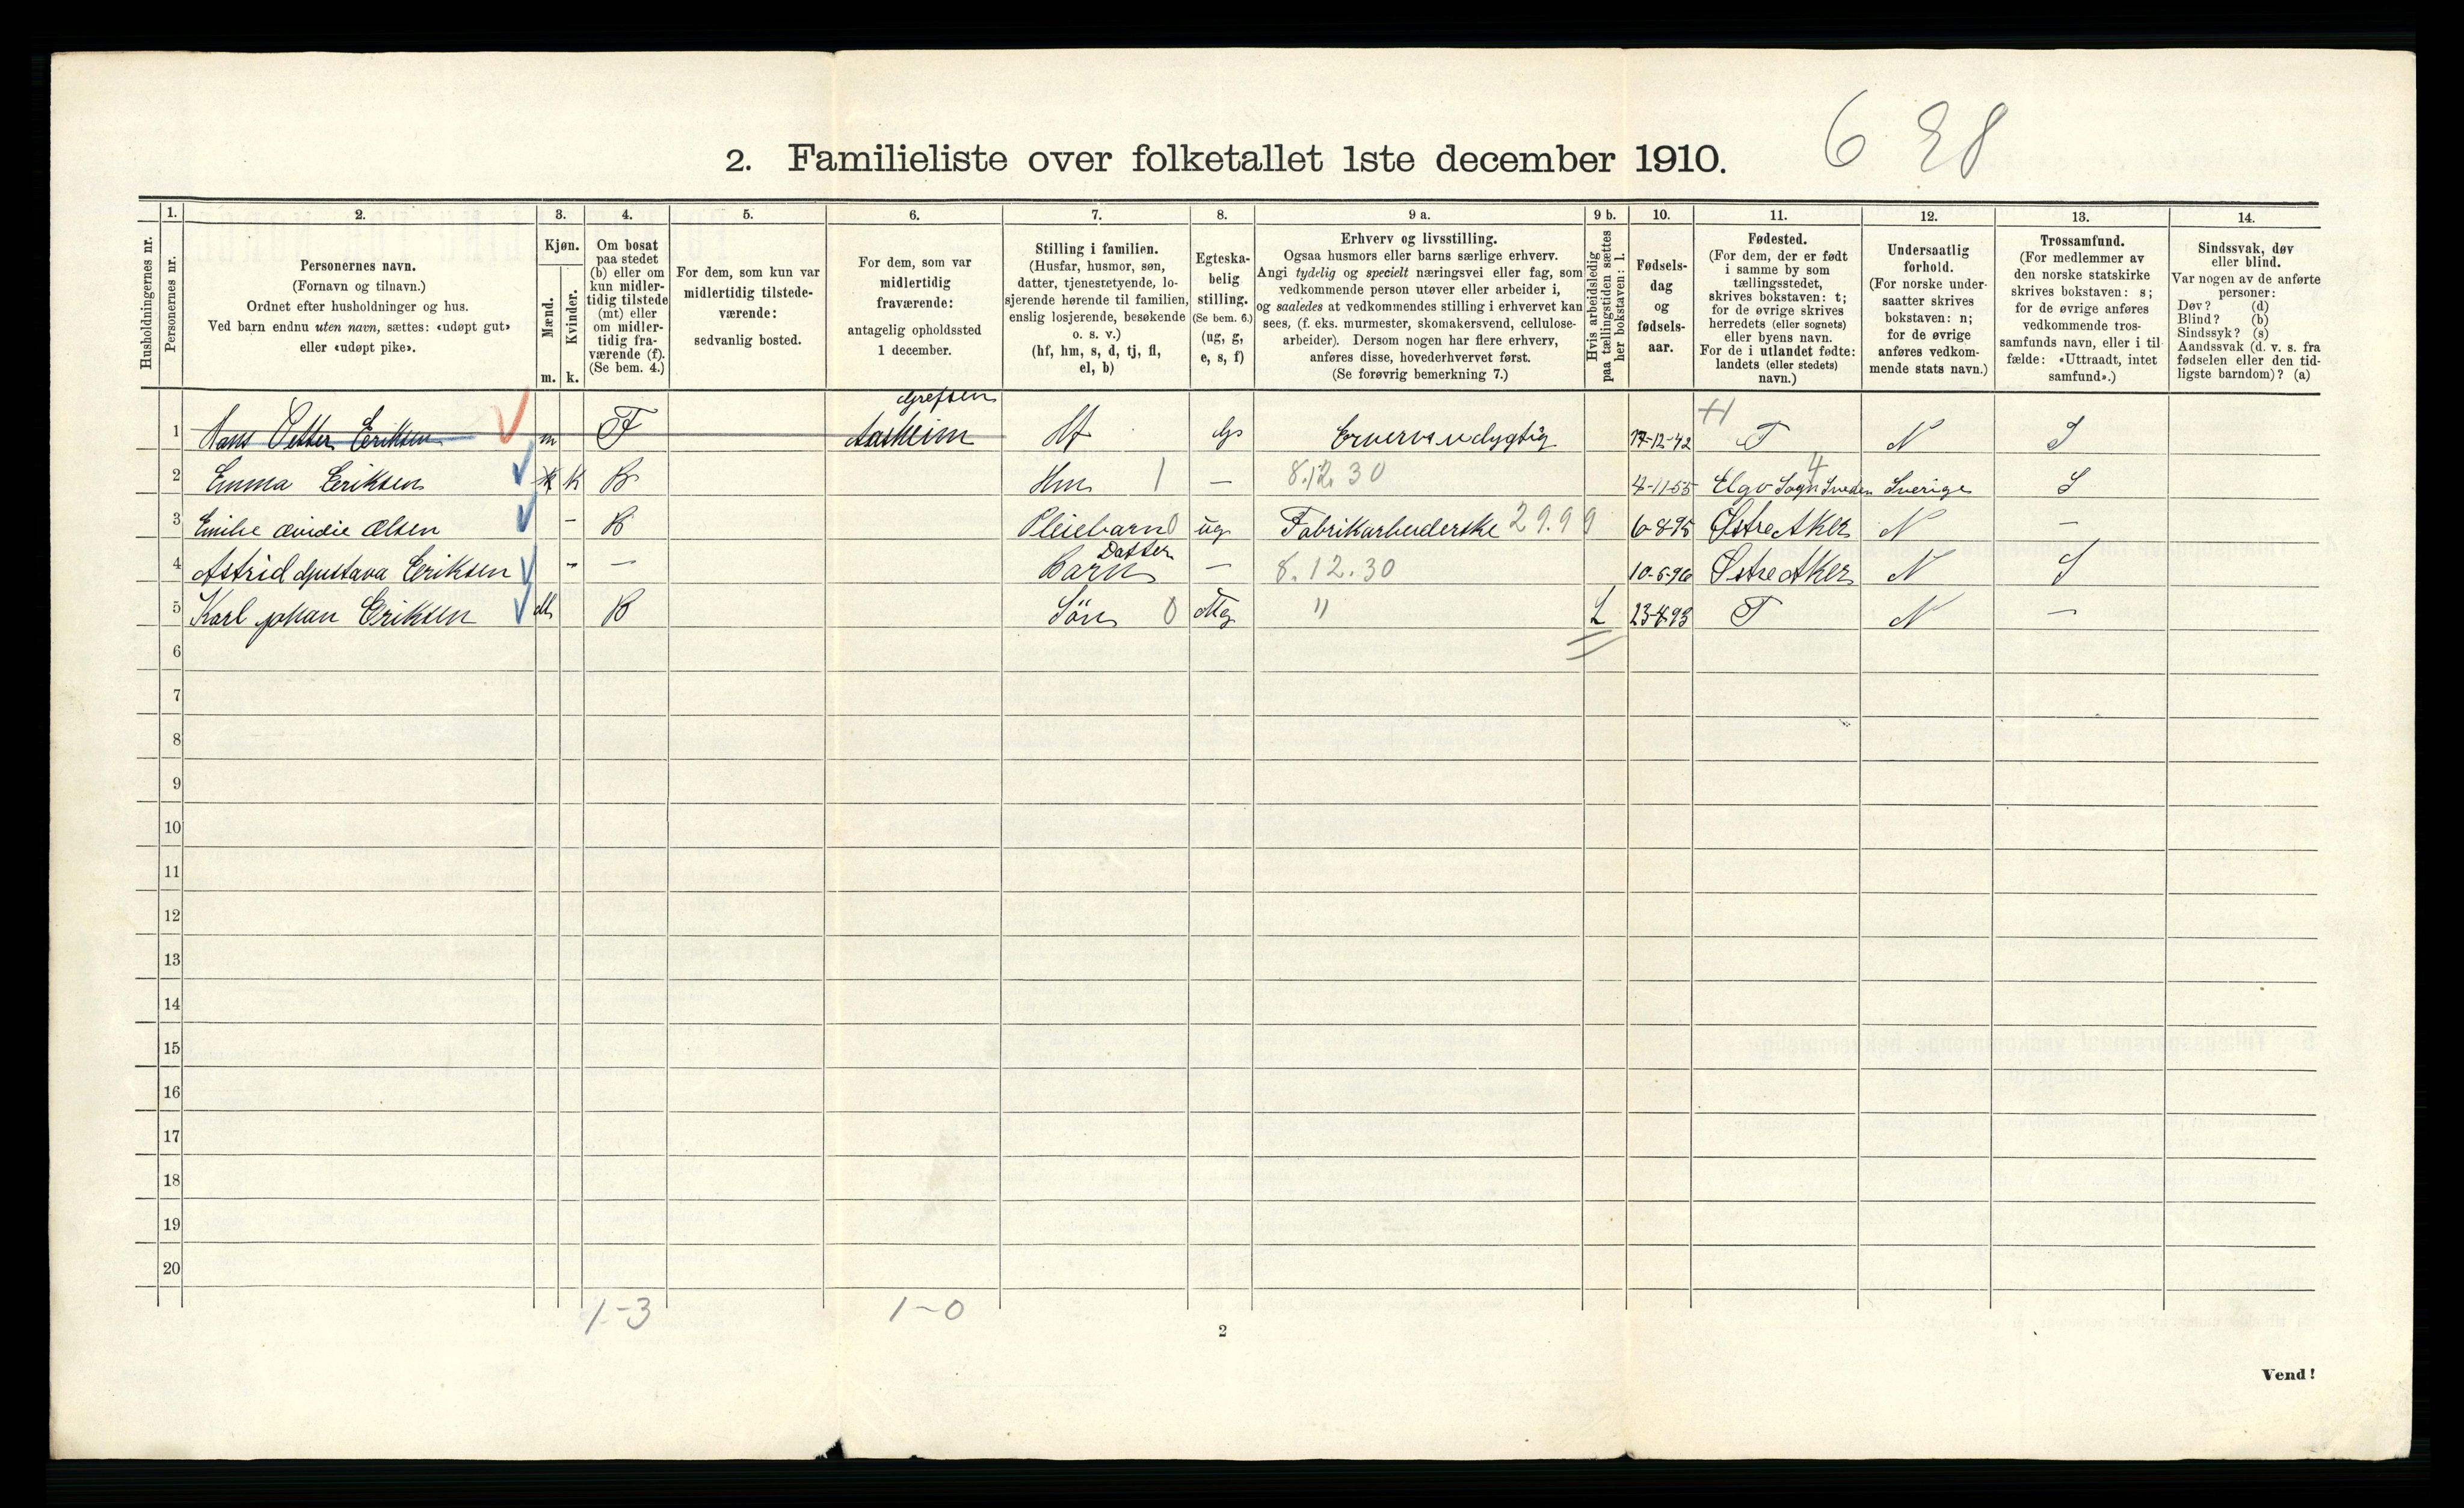 6 28
2. Familieliste over folketallet 1ste december 1910.
Husholdningernes nr.
1.
Personernes nr.
2.
Personernes navn.
(Fornavn og tilnavn.)
Ordnet efter husholdninger og hus.
Ved barn endnu uten navn, sættes: «udøpt gut»
eller «udøpt pike».
3.
Kjøn.
Mænd.
Kvinder.
m. k.
4.
Om bosat
paa stedet
(b) eller om
kun midler-
tidig tilstede
(mt) eller
om midler-
tidig fra-
værende (f).
(Se bem. 4.)
5.
For dem, som kun var
midlertidig tilstede-
værende:
sedvanlig bosted.
6.
For dem, som var
midlertidig
fraværende:
antagelig opholdssted
1 december.
7.
Stilling i familien.
(Husfar, husmor, søn,
datter, tjenestetyende, lo-
sjerende hørende til familien,
enslig losjerende, besøkende
o. s. v.)
(hf, hm, s, d, tj, fl,
el, b)
8.
Egteska-
belig
stilling.
(Se bem. 6.)
(ug, g,
e, s, f)
9 a.
Erhverv og livsstilling.
Ogsaa husmors eller barns særlige erhverv.
Angi tydelig og specielt næringsvei eller fag, som
vedkommende person utøver eller arbeider i,
og saaledes at vedkommendes stilling i erhvervet kan
sees, (f. eks. murmester, skomakersvend, cellulose-
arbeider). Dersom nogen har flere erhverv,
anføres disse, hovederhvervet først.
(Se forøvrig bemerkning 7.)
9 b.
Hvis arbeidsledig
paa tællingstiden sættes
her bokstaven: l.
10.
Fødsels-
dag
og
fødsels-
aar.
11.
Fødested.
(For dem, der er født
i samme by som
tællingsstedet,
skrives bokstaven: t;
for de øvrige skrives
herredets (eller sognets)
eller byens navn.
For de i utlandet fødte:
landets (eller stedets)
navn.)
12.
Undersaatlig
forhold.
(For norske under-
saatter skrives
bokstaven: n;
for de øvrige
anføres vedkom-
mende stats navn.)
13.
Trossamfund.
(For medlemmer av
den norske statskirke
skrives bokstaven: s;
for de øvrige anføres
vedkommende tros-
samfunds navn, eller i til-
fælde: «Uttraadt, intet
samfund».)
14.
Sindssvak, døv
eller blind.
Var nogen av de anførte
personer:
Døv? (d)
Blind? (b)
Sindssyk? (s)
Aandssvak (d. v. s. fra
fødselen eller den tid-
ligste barndom)? (a)
Grefsen
1 Hans Petter Eriksen m F Aasheim Hf G Ervervsudygtig 17-12-42 T N S
2 Emma Eriksen K B Hm 1 — 8.12.30 4-11-55 Elgo Sogn Sveden 4 Sverige S
3 Emilie Olsen - B Pleiebarn 0 ug Fabrikarbeiderske 29.99 6-8-95 Østre Aker N —
Datter
4 Astrid Gustava Eriksen - — Barn — 8.12.30 10-5-96 Østre Aker N S
5 Karl johan Eriksen M B Søn 0 Ug " L 23-8-93 T N —
6
7
8
9
10
11
12
13
14
15
16
17
18
19
20
1-3 1-0
2
Vend!